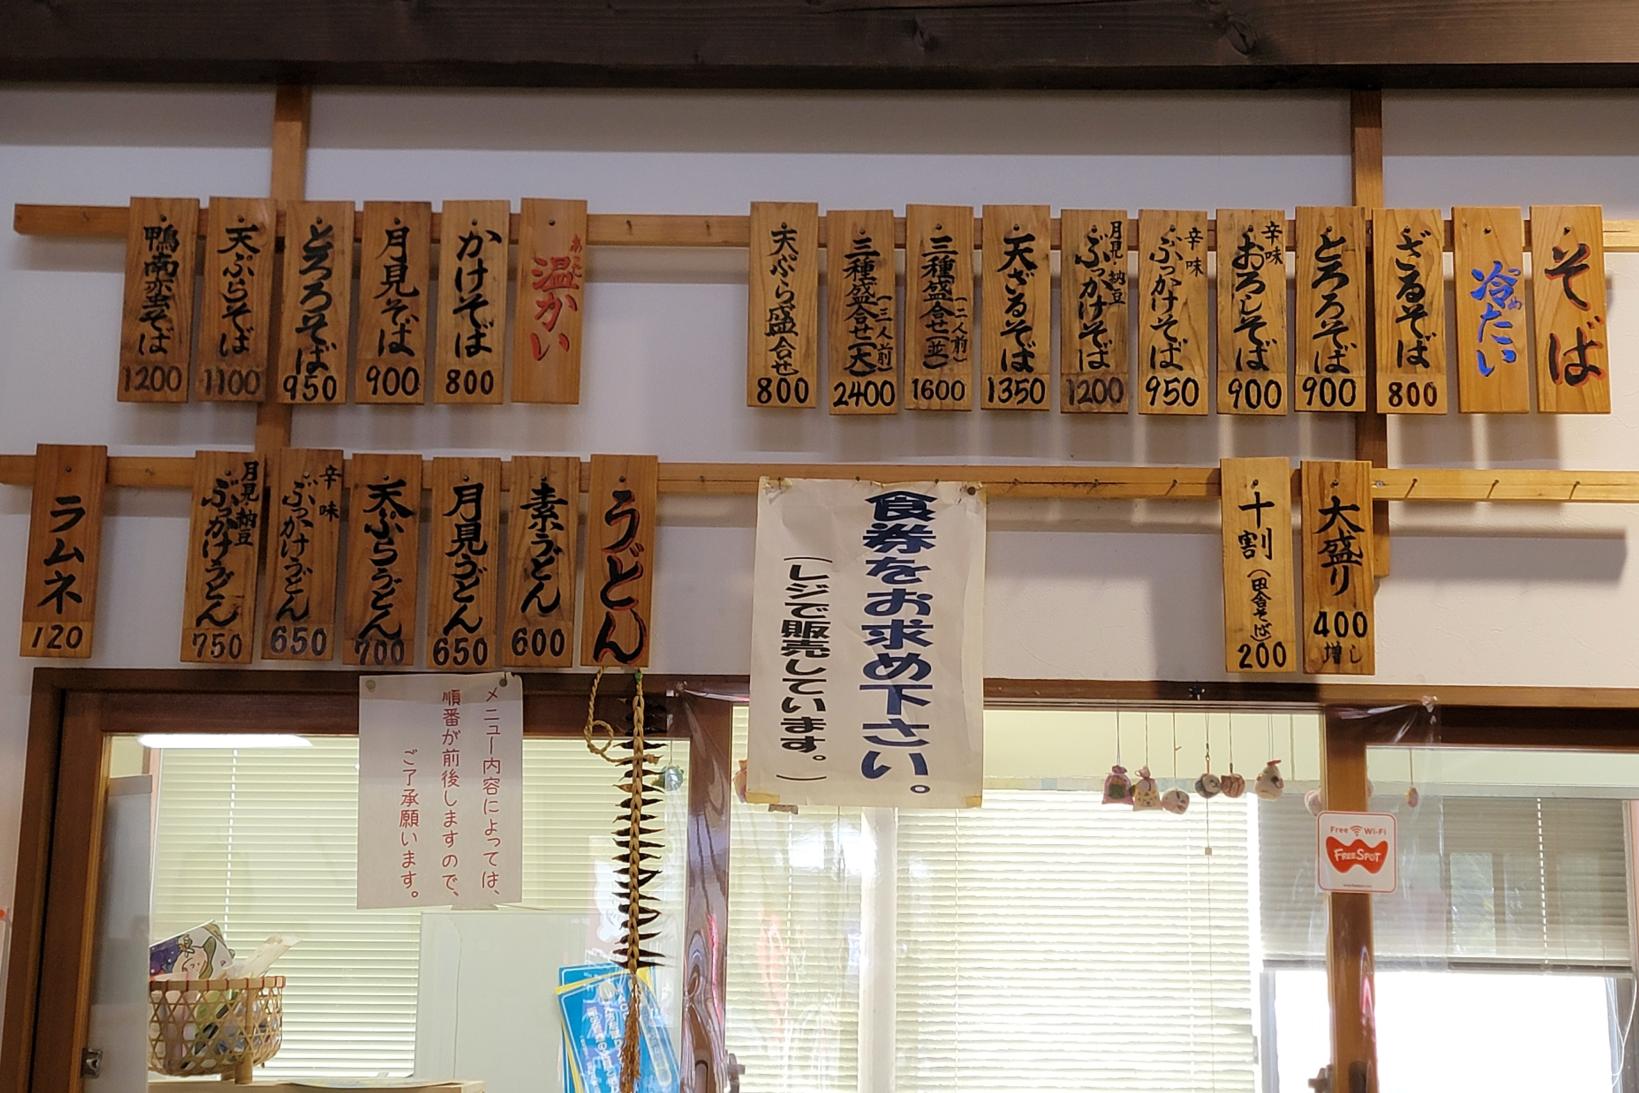 そば
冷たい
つめ
ざるそば
800
とろろそば
900
辛味
おろしそば
900
辛味
ぶっかけそば
950
月見・納豆
ぶっかけそば
1200
天ざるそば
1350
三種盛合せ(並)
(二人前)
1600
三種盛合せ(大)
(三人前)
2400
天ぷら盛合せ
800
温かい
あたた
かけそば
800
月見そば
900
とろろそば
950
天ぷらそば
1100
鴨南蛮そば
1200
大盛り
400
増し
十割(田舎そば)
200
食券をお求め下さい。
(レジで販売しています。)
うどん
素うどん
600
月見うどん
650
天ぷらうどん
700
辛味
ぶっかけうどん
650
月見・納豆
ぶっかけうどん
750
ラムネ
120
メニュー内容によっては、
順番が前後しますので、
ご了承願います。
Free Wi-Fi
FREESPOT